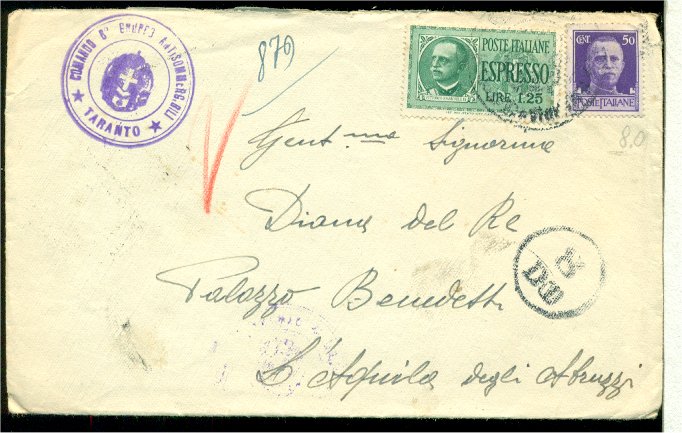 COMANDO 6° GRUPPO ANTISOMMERG.BILI
★ TARANTO ★
879
POSTE ITALIANE
ESPRESSO
LIRE 1.25
CENT 50
POSTE ITALIANE
8.0
Gent.ma Signorina
Diana del Re
Palazzo Benedetti
L'Aquila degli Abruzzi